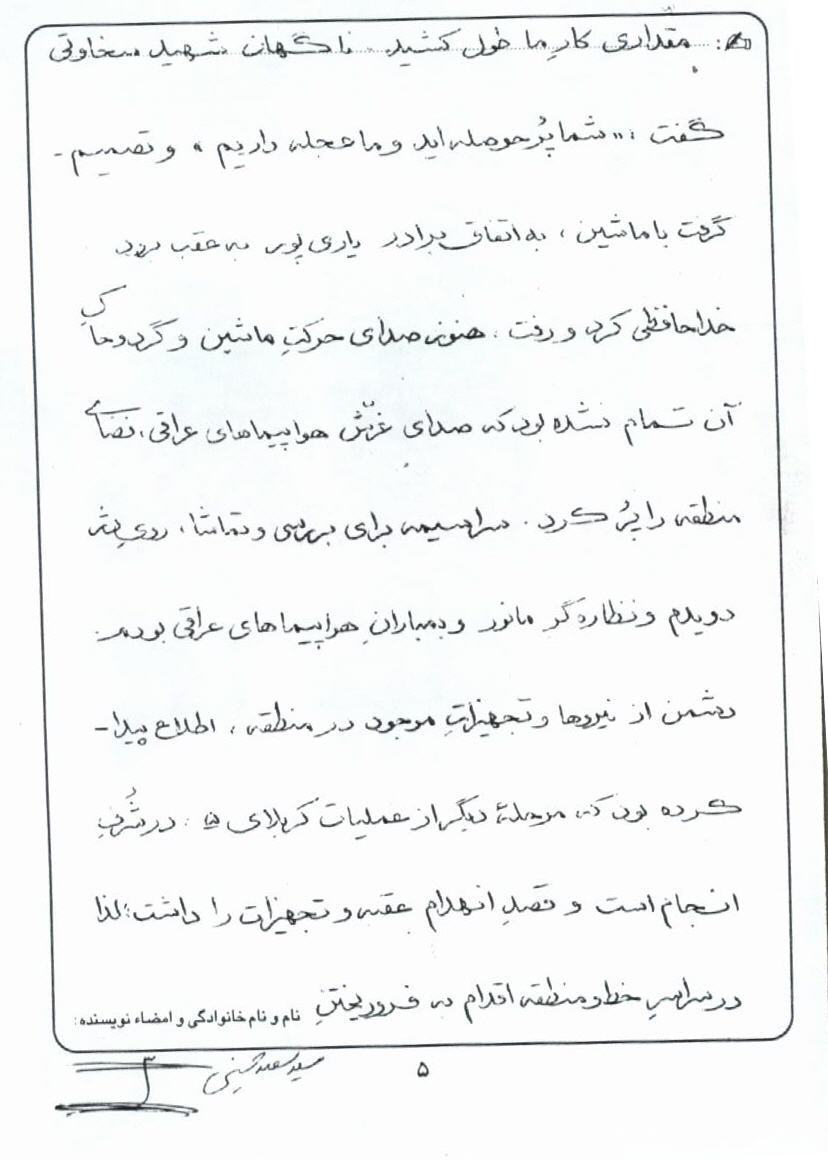 مقداری کار ما طول کشید. ناگهان شهید سخاوتی
گفت : «شما پُر حوصله اید و ما عجله داریم» و تصمیم -
گرفت با ماشین ، به اتفاق برادر یاری پور به عقب برود
خداحافظی کرد و رفت . هنوز صدای حرکتِ ماشین و گرد و خاکِ
آن تمام نشده بود که صدای غرّش هواپیماهای عراقی ، فضای
منطقه را پُر کرد . سراسیمه برای بررسی و تماشا ، روی
دویدم و نظاره گر مانور و بمبارانِ هواپیماهای عراقی بودم.
دشمن از نیروها و تجهیزاتِ موجود در منطقه ، اطلاع پیدا -
کرده بود که مرحلۀ دیگر از عملیات کربلای ۵ ، در شُرُفِ
انجام است و قصدِ انهدام عقبه و تجهیزات را داشت؛ لذا
در سراسرِ خط و منطقه اقدام به فرو ریختنِ
نام و نام خانوادگی و امضاء نویسنده:
۵